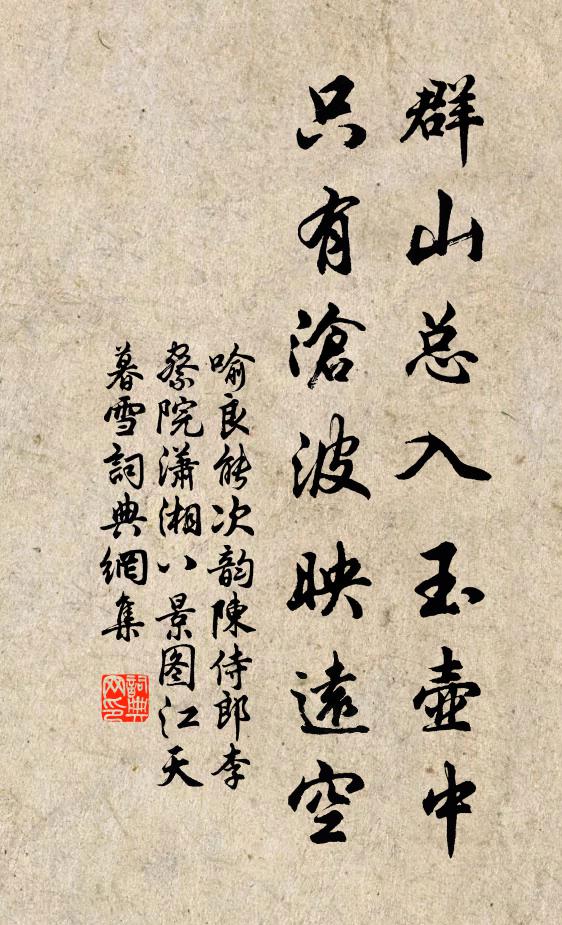 群山总入玉壺中
只有滄波映遠空
喻良能次韵陳侍郎李
察院潇湘八景图江天
暮雪詞典網集
詞典
网印